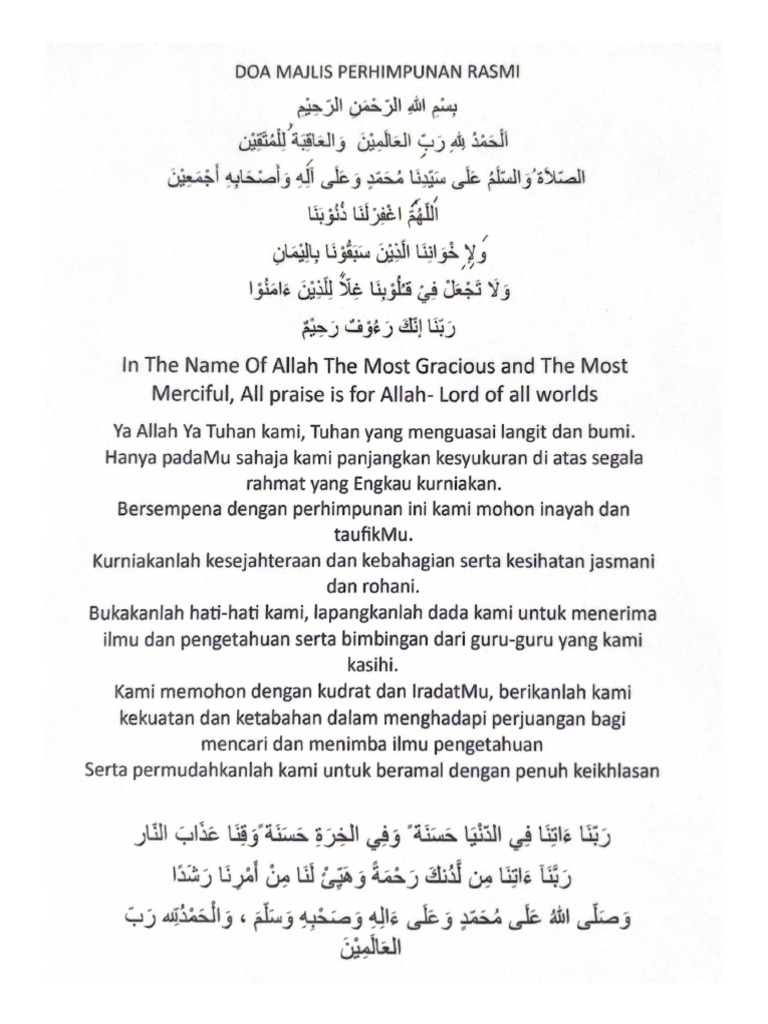 DOA MAJLIS PERHIMPUNAN RASMI
بِسْمِ اللهِ الرَّحْمَنِ الرَّحِيْمِ
اَلْحَمْدُ لِلهِ رَبِّ العَالَمِيْنَ وَالعَاقِبَةُ لِلْمُتَّقِيْن
الصَّلاَةُ وَالسَّلَمُ عَلَى سَيِّدِنَا مُحَمَّدٍ وَعَلَى آلِهِ وَأَصْحَابِهِ أَجْمَعِيْنَ
اَللَّهُمَّ اغْفِرْلَنَا ذُنُوْبَنَا
وَلِإِ خْوَانِنَا الَّذِيْنَ سَبَقُوْنَا بِالِيْمَانِ
وَلَا تَجْعَلْ فِيْ قُلُوْبِنَا غِلًّا لِلَّذِيْنَ ءَامَنُوْا
رَبَّنَا إِنَّكَ رَءُوْفٌ رَحِيْمٌ
In The Name Of Allah The Most Gracious and The Most
Merciful, All praise is for Allah- Lord of all worlds
Ya Allah Ya Tuhan kami, Tuhan yang menguasai langit dan bumi.
Hanya padaMu sahaja kami panjangkan kesyukuran di atas segala
rahmat yang Engkau kurniakan.
Bersempena dengan perhimpunan ini kami mohon inayah dan
taufikMu.
Kurniakanlah kesejahteraan dan kebahagian serta kesihatan jasmani
dan rohani.
Bukakanlah hati-hati kami, lapangkanlah dada kami untuk menerima
ilmu dan pengetahuan serta bimbingan dari guru-guru yang kami
kasihi.
Kami memohon dengan kudrat dan IradatMu, berikanlah kami
kekuatan dan ketabahan dalam menghadapi perjuangan bagi
mencari dan menimba ilmu pengetahuan
Serta permudahkanlah kami untuk beramal dengan penuh keikhlasan
رَبَّنَا ءَاتِنَا فِي الدُّنْيَا حَسَنَةً وَفِي الخِرَةِ حَسَنَةً وَقِنَا عَذَابَ النَّار
رَبَّنَآ ءَاتِنَا مِن لَّدُنكَ رَحْمَةً وَهَيِّئْ لَنَا مِنْ أَمْرِنَا رَشَدًا
وَصَلَّى اللهُ عَلَى مُحَمَّدٍ وَعَلَى ءَالِهِ وَصَحْبِهِ وَسَلَّمَ ، وَالْحَمْدُلِلّه رَبّ
العَالَمِيْنَ